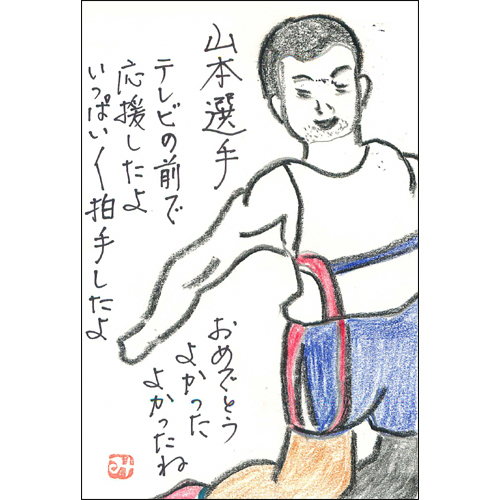 山本選手
テレビの前で
応援したよ
いっぱい〱拍手したよ
おめでとう
よかった
よかったね
み